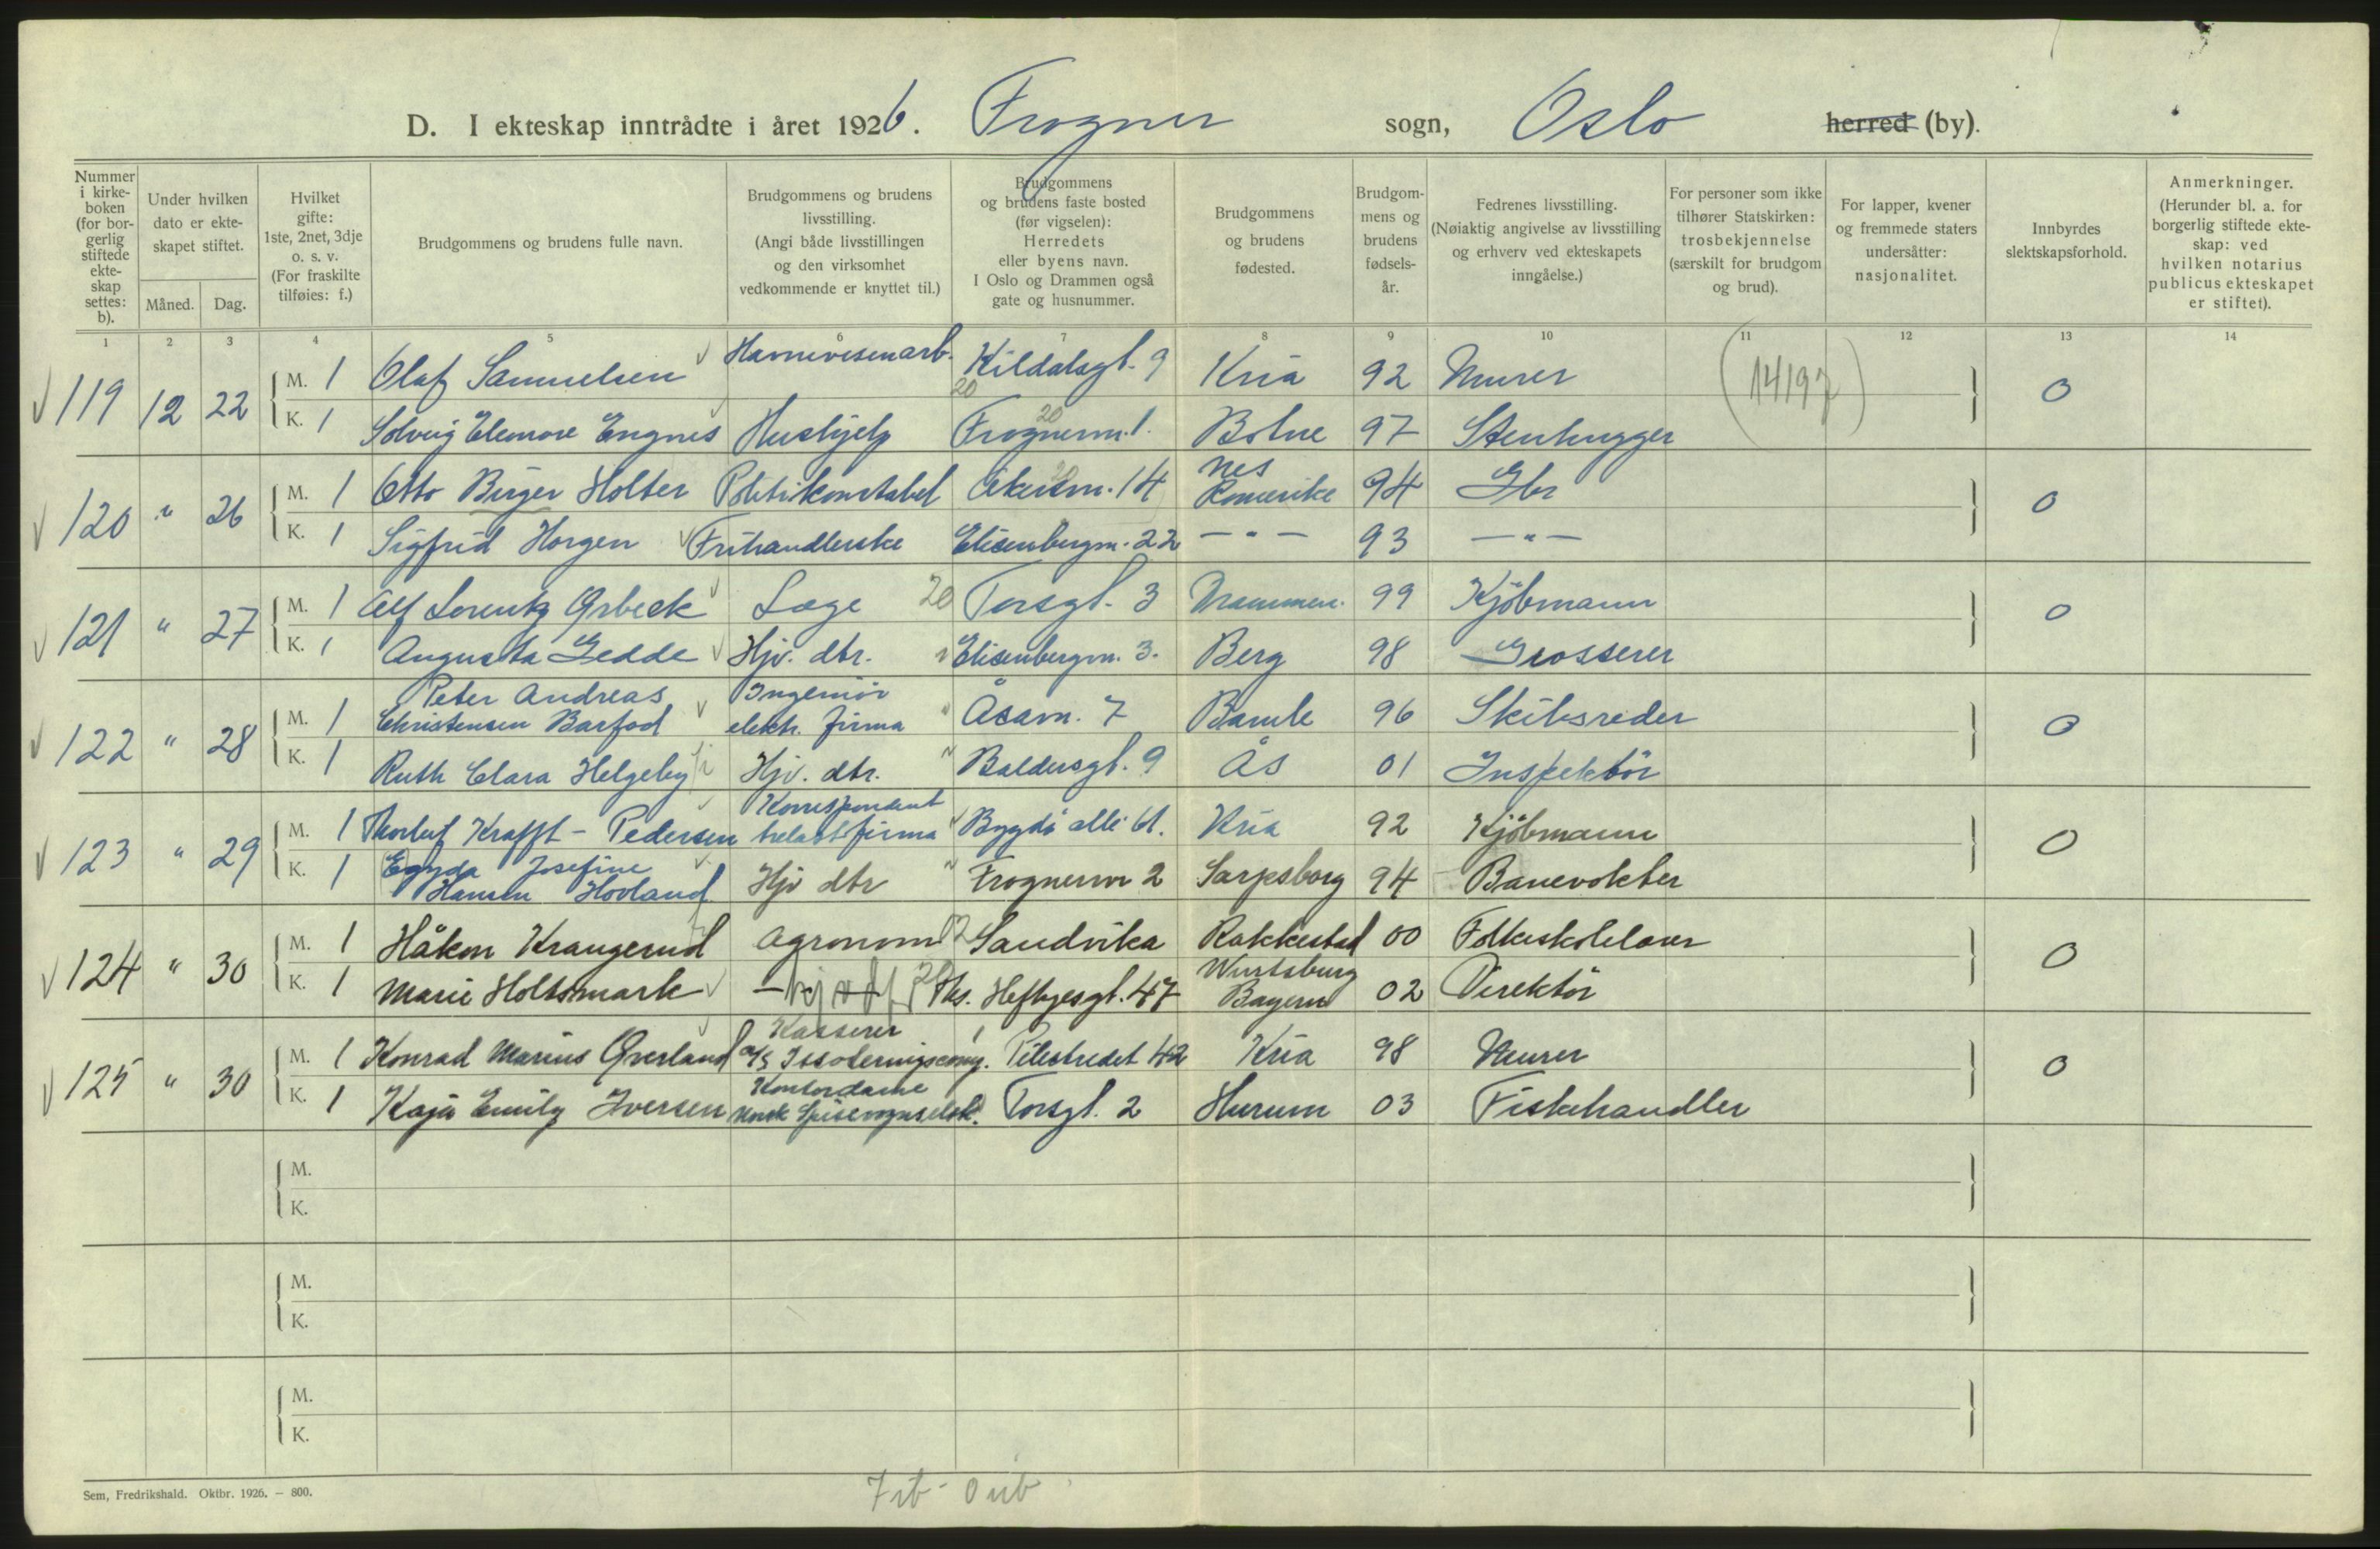 D. I ekteskap inntrådte i året 1926. Frogner sogn, Oslo herred (by).
Nummer i kirke-boken (for bor-gerlig stiftede ekte-skap settes: b).
Under hvilken dato er ekte-skapet stiftet.
Måned. Dag.
Hvilket gifte: 1ste, 2net, 3dje o. s. v. (For fraskilte tilføies: f.)
Brudgommens og brudens fulle navn.
Brudgommens og brudens livsstilling. (Angi både livsstillingen og den virksomhet vedkommende er knyttet til.)
Brudgommens og brudens faste bosted (før vigselen): Herredets eller byens navn. I Oslo og Drammen også gate og husnummer.
Brudgommens og brudens fødested.
Brudgom-mens og brudens fødsels-år.
Fedrenes livsstilling. (Nøiaktig angivelse av livsstilling og erhverv ved ekteskapets inngåelse.)
For personer som ikke tilhører Statskirken: trosbekjennelse (særskilt for brudgom og brud).
For lapper, kvener og fremmede staters undersåtter: nasjonalitet.
Innbyrdes slektskapsforhold.
Anmerkninger. (Herunder bl. a. for borgerlig stiftede ekte-skap: ved hvilken notarius publicus ekteskapet er stiftet).
1 2 3 4 5 6 7 8 9 10 11 12 13 14
119 12 22 M. 1 Olaf Samuelsen Havnevesenarb. Kildalsgt. 9 Kria 92 Murer 0
K. 1 Solveig Eleonore Engnes Hushjelp Frognerv. 1. Botne 97 Stenhugger
120 " 26 M. 1 Otto Birger Holter Politikonstabel Akersv. 14 Nes Romerike 94 Gbr 0
K. 1 Sigfrid Horgen Frihandlerske Elisenbergv. 22 — " — 93 — " —
121 " 27 M. 1 Alf Lorentz Ørbeck Læge 20 Torsgt. 3 Drammen. 99 Kjöbmann 0
K. 1 Augusta Gedde Hjv. dtr. Elisenbergv. 3. Berg 98 Grosserer
122 " 28 M. 1 Peter Andreas Christensen Barfod Ingeniör elektr. firma Åsav. 7 Bamle 96 Skibsreder 0
K. 1 Ruth Clara Helgeby Hjv. dtr. " Baldersgt. 9 Ås 01 Inspektör
123 " 29 M. 1 Thorleif Krafft - Pedersen Korrespondent trelastfirma Bygdö alle 61. Kria 92 Kjöbmann 0
K. 1 Egyda Josefine Hansen Hovland Hjv dtr " Frognerv 2 Sarpsborg 94 Banevokter
124 " 30 M. 1 Håkon Krangerud Agronom Sandvika Rakkestad 00 Folkeskolelærer 0
K. 1 Marie Holtsmark Ths. Heftyesgt. 47 Wurtsburg Bayern 02 Direktör
125 " 30 M. 1 Konrad Marius Øverland Kasserer A/S Isoleringscomp. Pilestredet 42 Kria 98 Murer 0
K. 1 Kaja Emily Iversen Kontordame Norsk Spisevognselsk. Torsgt. 2 Hurum 03 Fiskehandler
M.
K.
M.
K.
M.
K.
Sem, Fredrikshald. Oktbr. 1926. — 800.